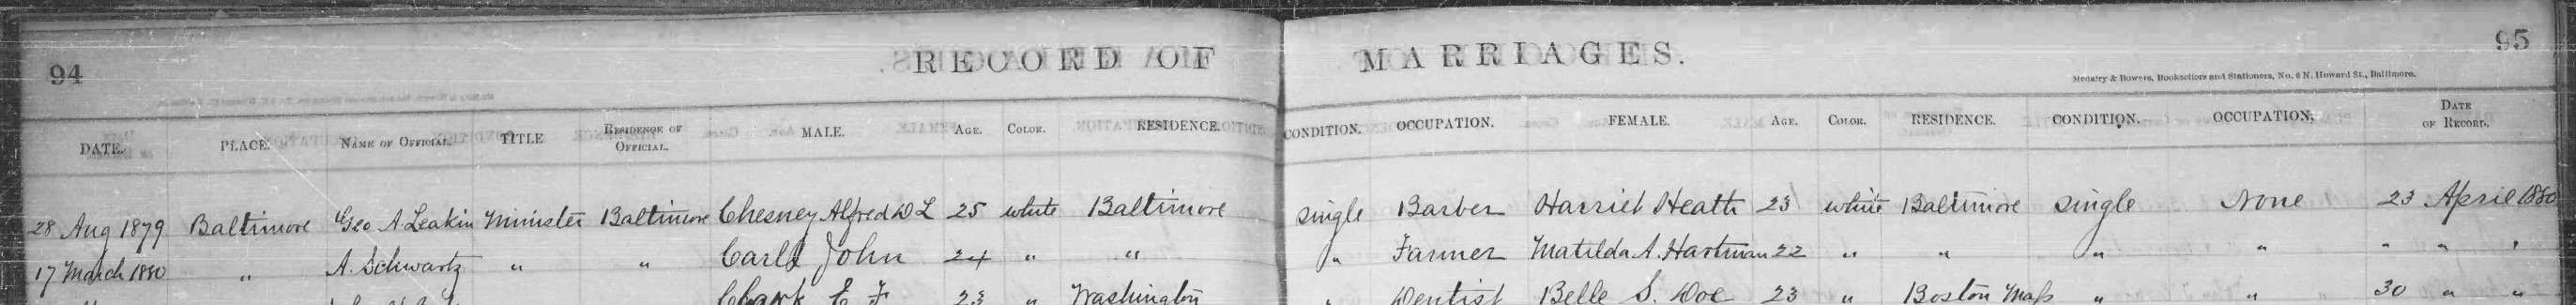 94 RECORD OF MARRIAGES. 95
Medairy & Bowers, Booksellers and Stationers, No. 6 N. Howard St., Baltimore.
DATE. PLACE. NAME OF OFFICIAL. TITLE RESIDENCE OF OFFICIAL. MALE. AGE. COLOR. RESIDENCE. CONDITION. OCCUPATION. FEMALE. AGE. COLOR. RESIDENCE. CONDITION. OCCUPATION. DATE OF RECORD.
28 Aug 1879 Baltimore Geo A Leakin Minister Baltimore Chesney Alfred D L 25 white Baltimore single Barber Harriet Heath 23 white Baltimore single None 23 April 1880
17 March 1880 " A. Schwartz " " Carll John 24 " " " Farmer Matilda A. Hartman 22 " " " " " " "
Clark E F 23 " Washington " Dentist Belle S. Doe 23 " Boston Mass " " 30 " "